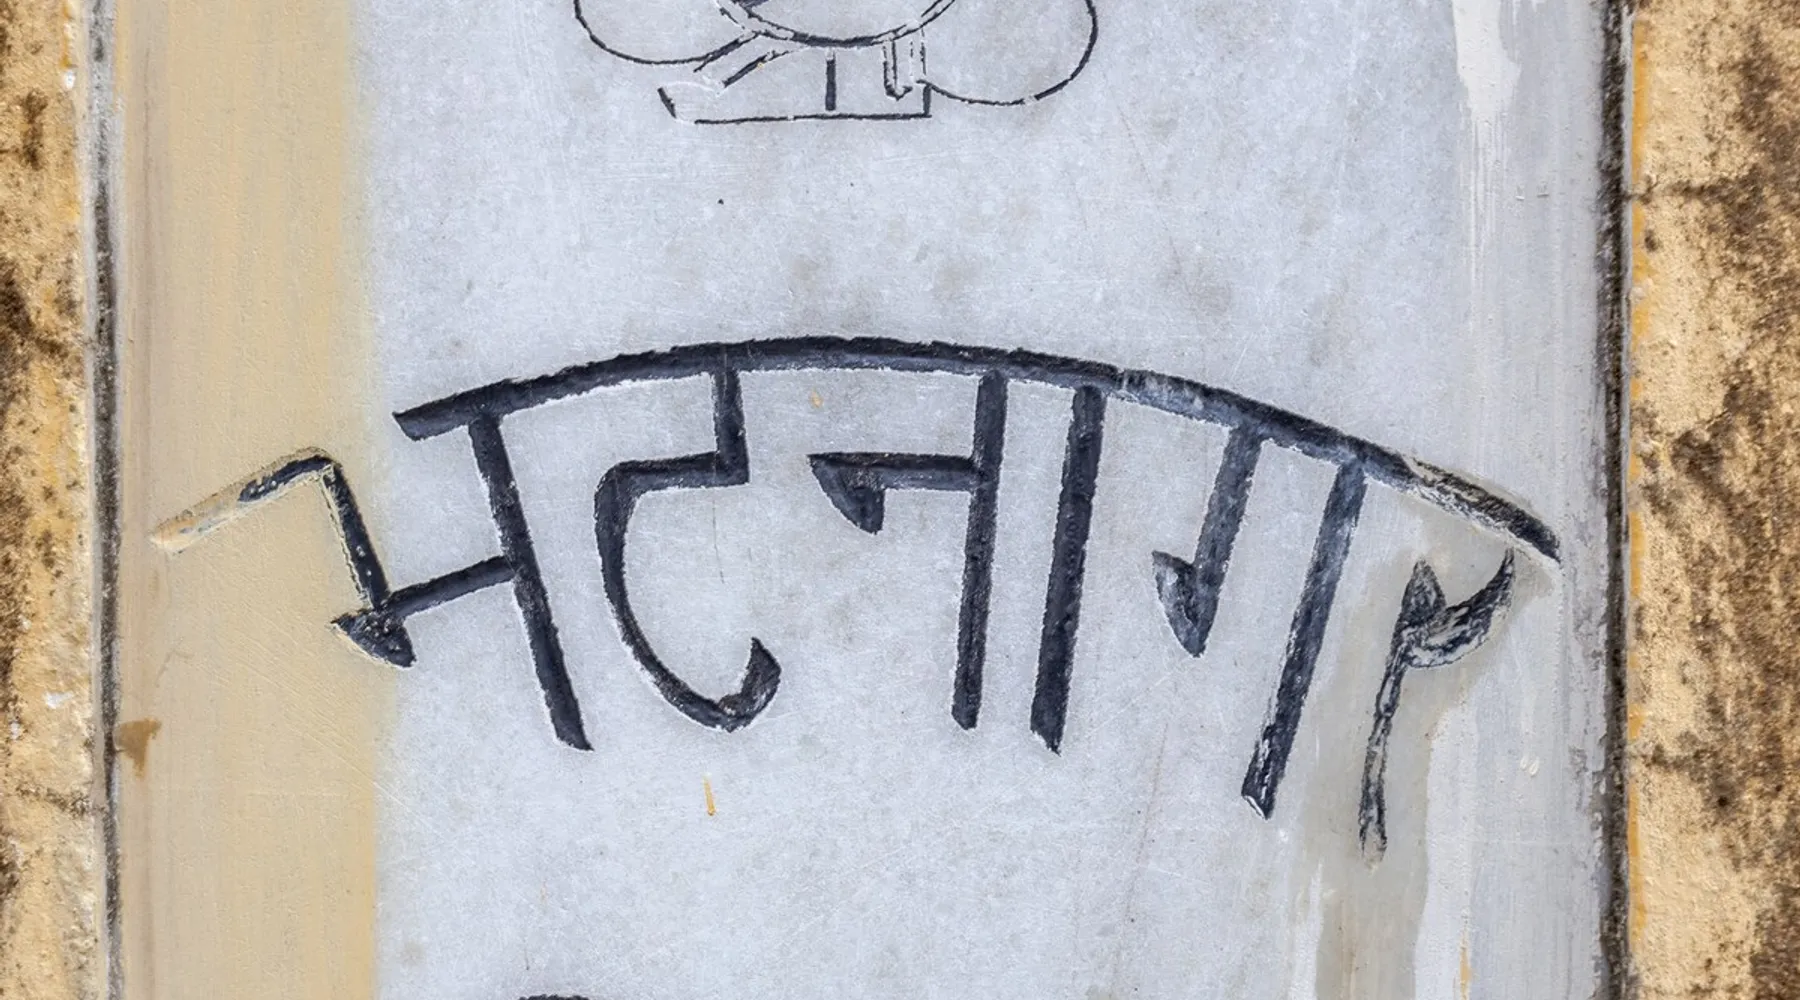 भटनागर